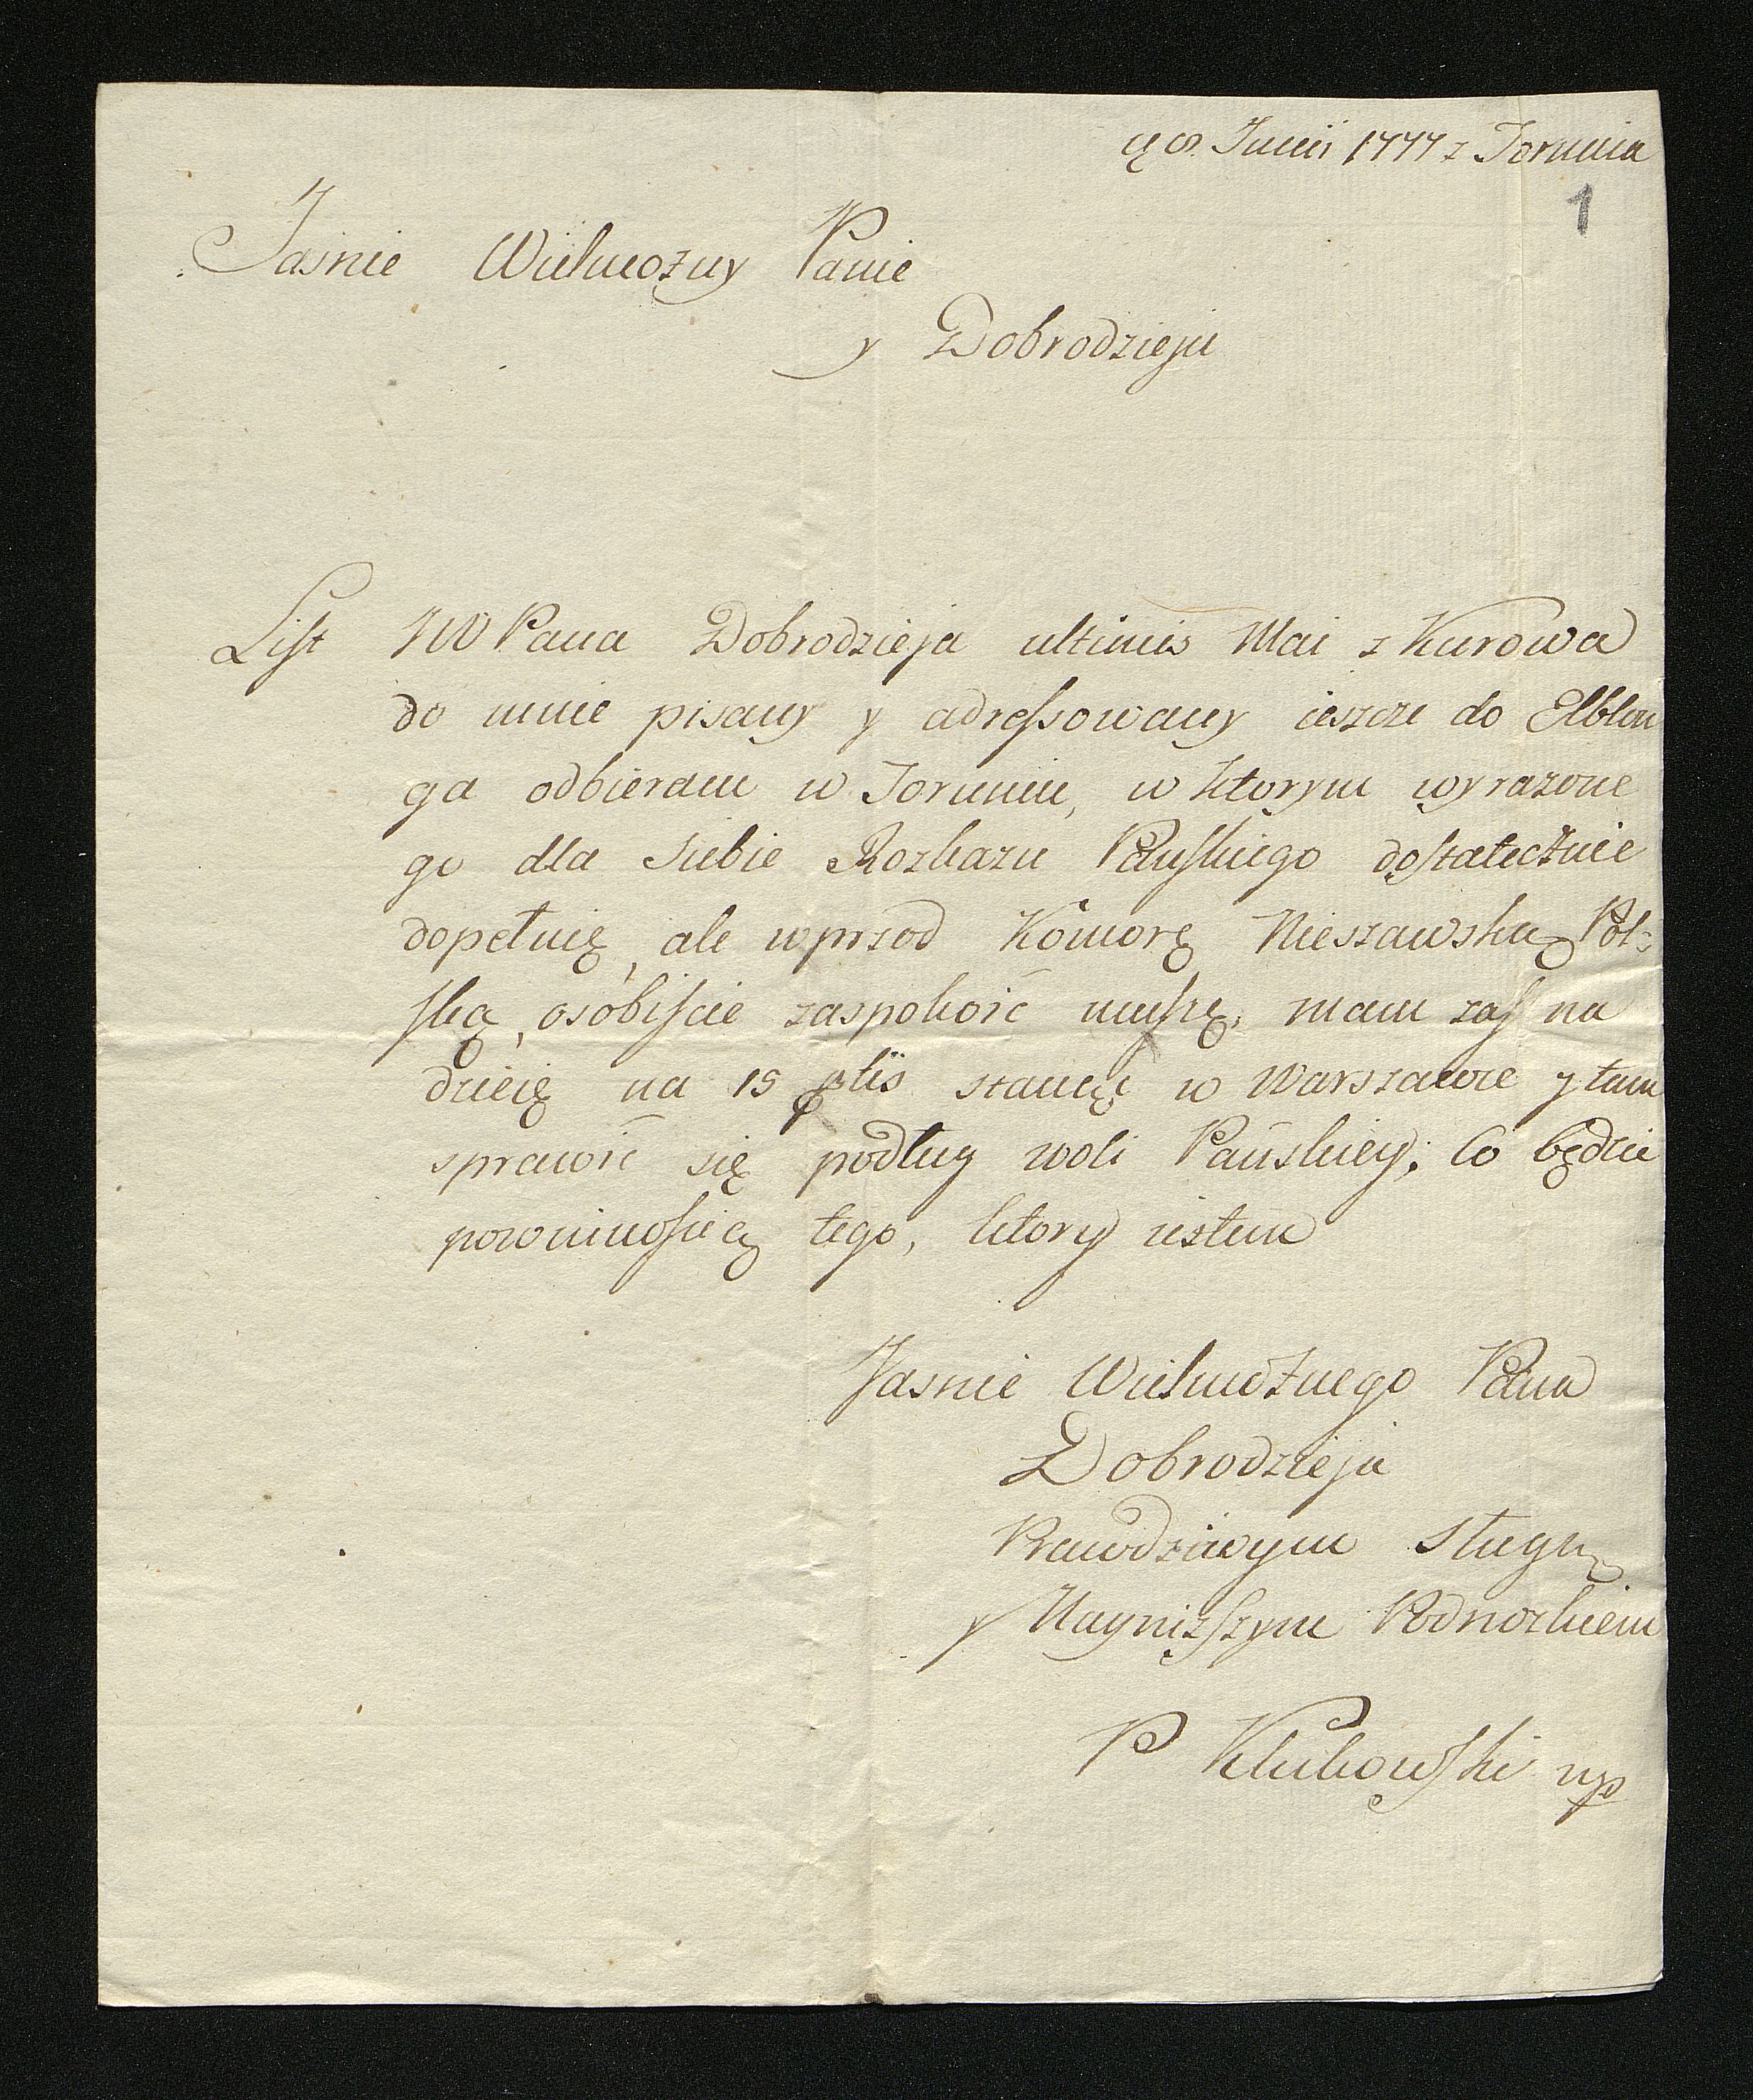 Junii 1777 z Torunia
1
Jasnie Wielmozny Panie
y Dobrodzieju
List JW Pana Dobrodzieja ultimis Mai z Kurowa
do mnie pisany y adressowany ieszcze do Elblon
ga odbieram w Toruniu, w ktorym wyrazone
go dla siebie Rozkazu Pańskiego dostatecznie
dopełnię, ale wprzod Komorę Nieszawską Pol:
ską, osobiscie zaspokoić muszę, mam zas na
dzieię na 15 stanąć w Warszawie y tam
sprawić się podług woli Pańskiey; Co będzie
powinnoscią tego, ktory iestem
Jasnie Wielmożnego Pana
Dobrodzieja
Prawdziwym sługą
y Naynizszym Podnozkiem
P Klukowski mp